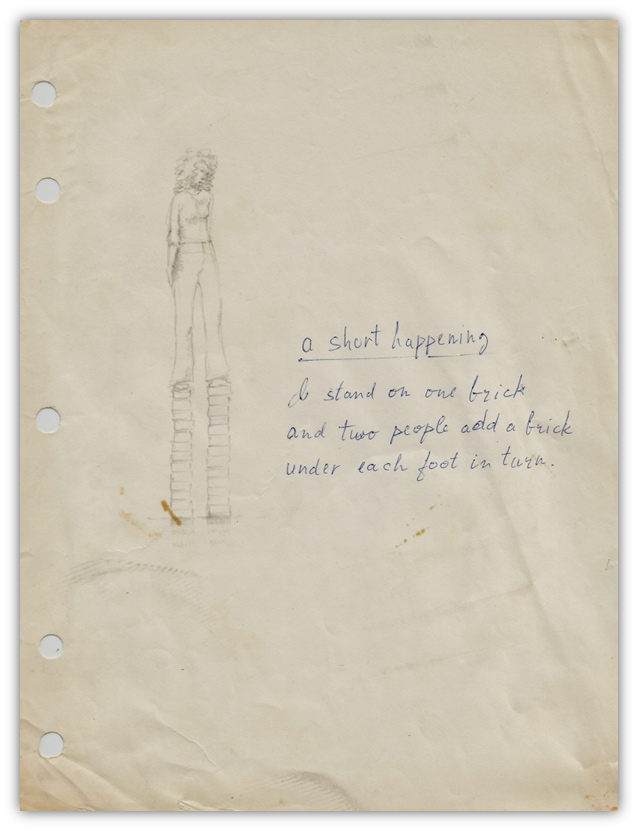 a short happening
I stand on one brick
and two people add a brick
under each foot in turn.